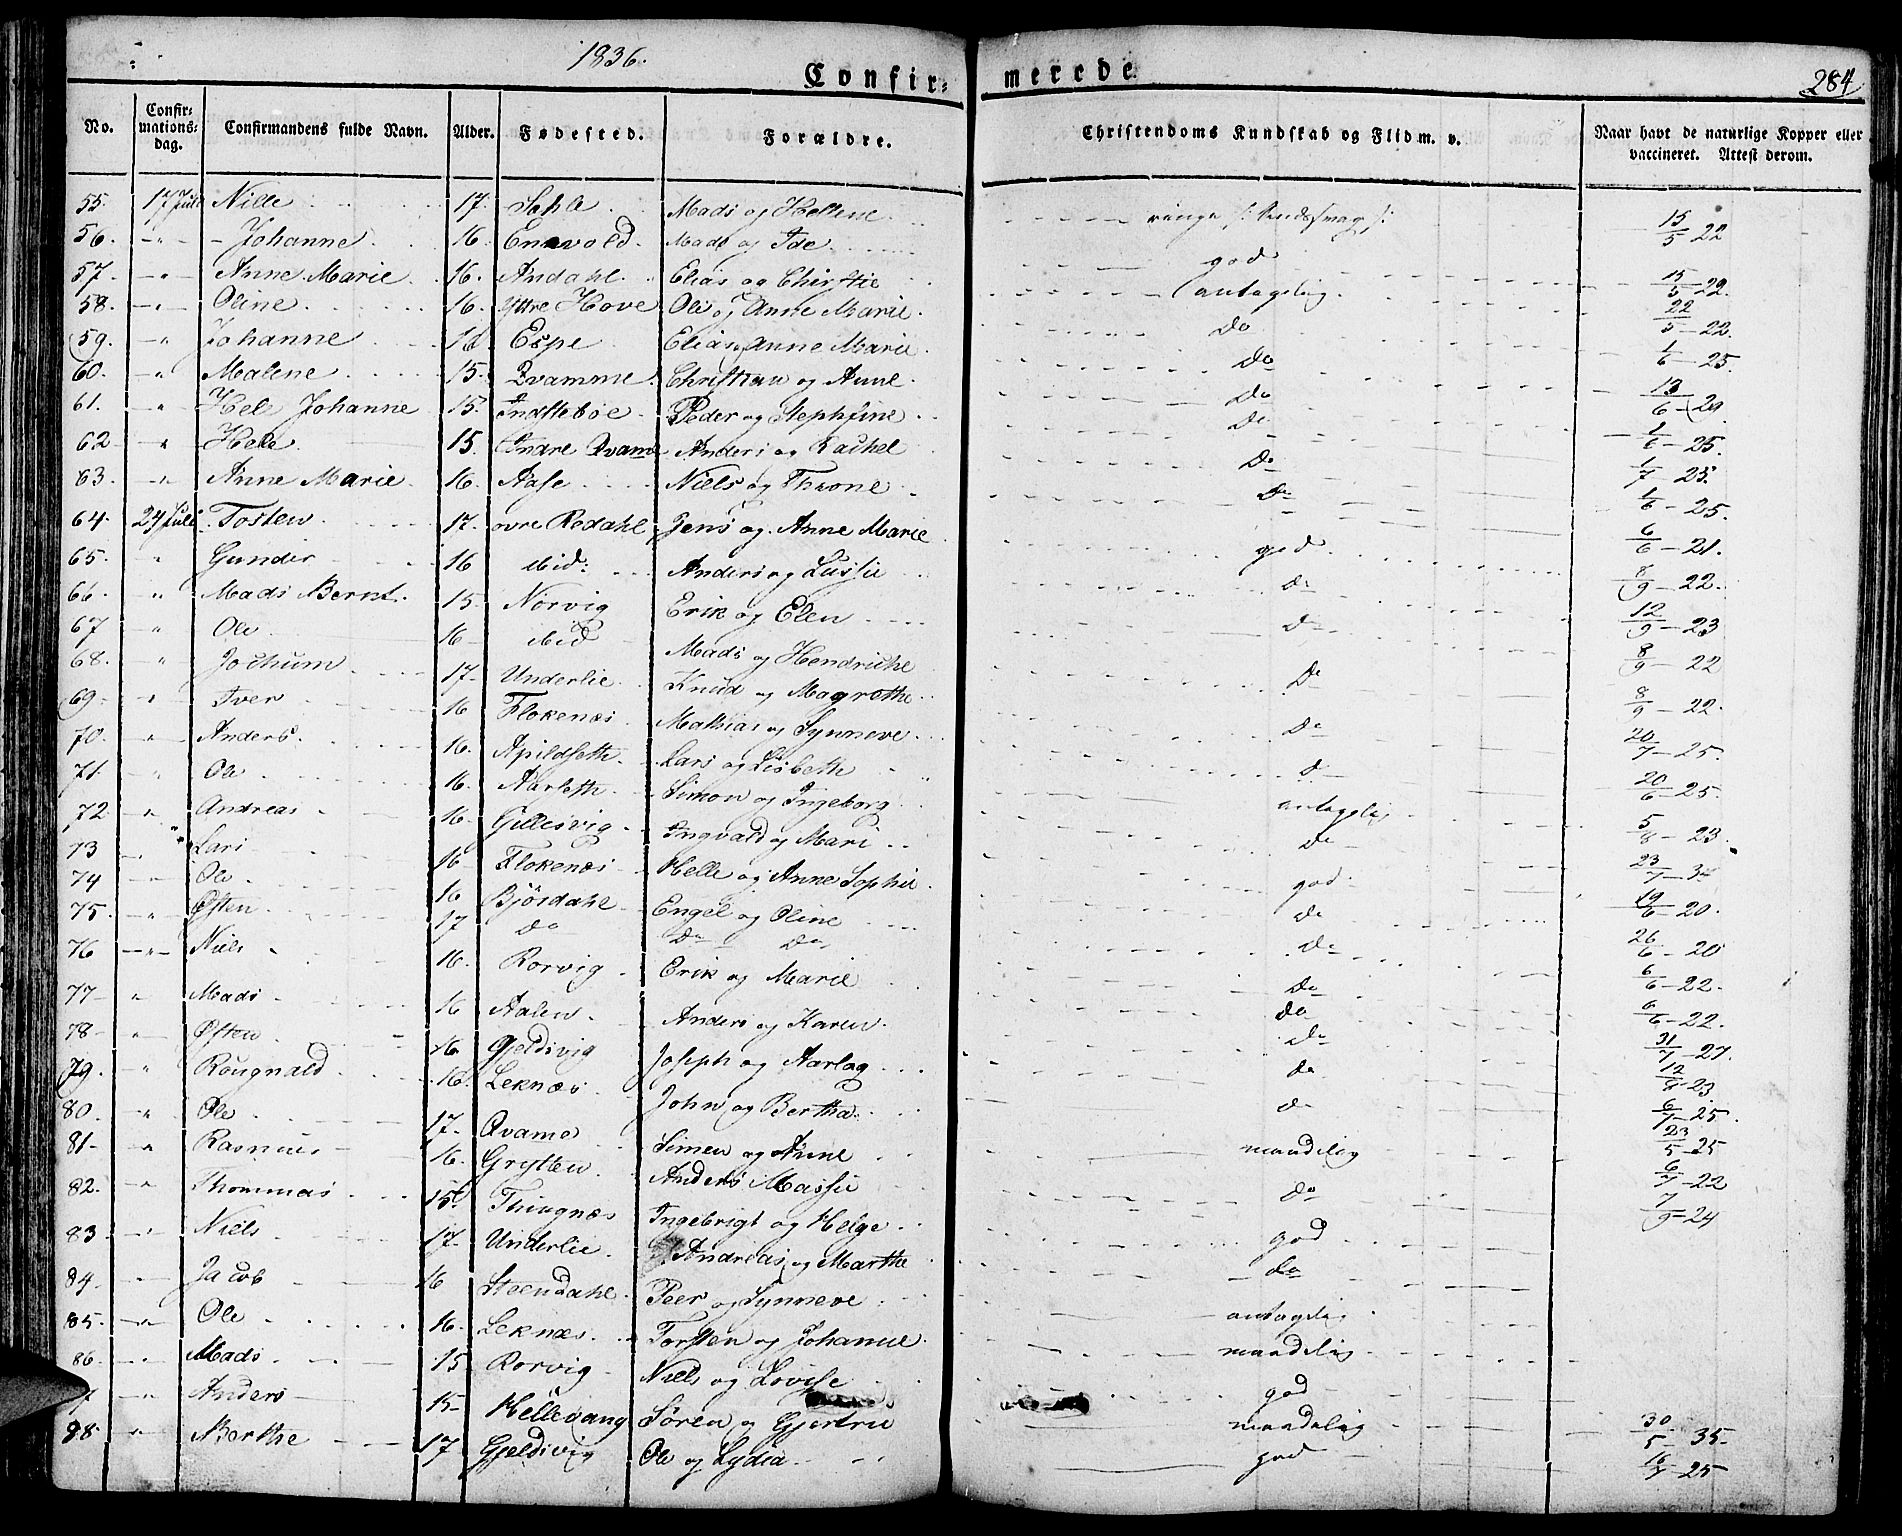 1836.
Confirmerede
284
No. Confirmations-dag. Confirmandens fulde Navn. Alder. Fødested. Forældre. Christendoms Kundskab og Flid m. v. Naar havt de naturlige Kopper eller vaccineret. Attest derom.
55. 17 Juli Nille 17. Sahle Mads og Hellene ringe 15/5 22
56. " Johanne 16. Enevold Mads og Ide god
57. " Anne Marie 16. Andahl Elias og Chirstie antagelig 15/5 22.
58. " Oline 16. Yttre Hove Ole og Anne Marie Do 22/5 22.
59. " Johanne 16 Espe Elias Anne Marie Do 1/6 25.
60. " Malene 15. Qvamme Christian og Anne Do 13/6 29
61. " Hele Johanne 15. Indstebøe Peder og Stephfine Do
62 " Hele 15. Indre Qvame Anders og Rachel Do 1/6 25.
63. " Anne Marie 16. Aase Niels og Throne Do 1/7 25.
64. 24 Juli Tosten 17. ovre Redahl Jens og Anne Marie 1/6 25.
65. " Gunder 16 ibid: Anders og Lussie god 6/6 21.
66. " Mads Bernt. 15 Norvig Erik og Elen Do 8/9 22.
67 " Ole 16 ibid Mads og Hendriche Do 12/9 23
68. " Jochum 17 Underlie Knud og Magrethe Do 8/9 22
69. " Iver 16 Flokenæs Mathias og Synneve Do 8/9 22.
70. " Anders. 16. Apildseth Lars og Lisbeth Do 20/7 25.
71. " Ole 16. Aarseth Simon og Ingeborg antagelig 20/6 25.
72 " Andreas 16. Gillesvig Ingvald og Mari Do 5/8 23.
73 " Lars 16 Flokenæs Helle og Anne Sophie god 23/7
74 " Ole 16 Björdahl Engel og Oline Do 19/6 20.
75. " Østen 17 Do Do Do Do 26/6 20
76 " Niels 16. Rorvig Erik og Marie Do 6/6 22.
77 " Mads 16 Aalen Anders og Karen Do 6/6 22.
78 " Østen 16 Gjeldivig Joseph og Aarlag Do 31/7 27
79. " Rougnald 16. Leknæs John og Bertha Do 12/9 23
80. " Ole 17. Qvame Simen og Anne Do 25.
81. " Rasmus 16. Grytten Anders Massie maadelig 23/5 25
82. " Thommas 15. Thingnæs Ingebrigt og Helge Do 22
83. " Niels 17. Underlie Andreas og Marthe god 7/9 24
84. " Jacob 16 Steendahl Peer og Synneve Do
85. " Ole 16. Leknæs Torsten og Johanne antagelig
86 " Mads 15 Rorvig Niels og Lovise maadelig
7 " Anders 15 Hellevang Søren og Gjertru god
88. " Berthe 17 Gjeldivig Ole og Lydia maadelig 30/5 35.
god 25